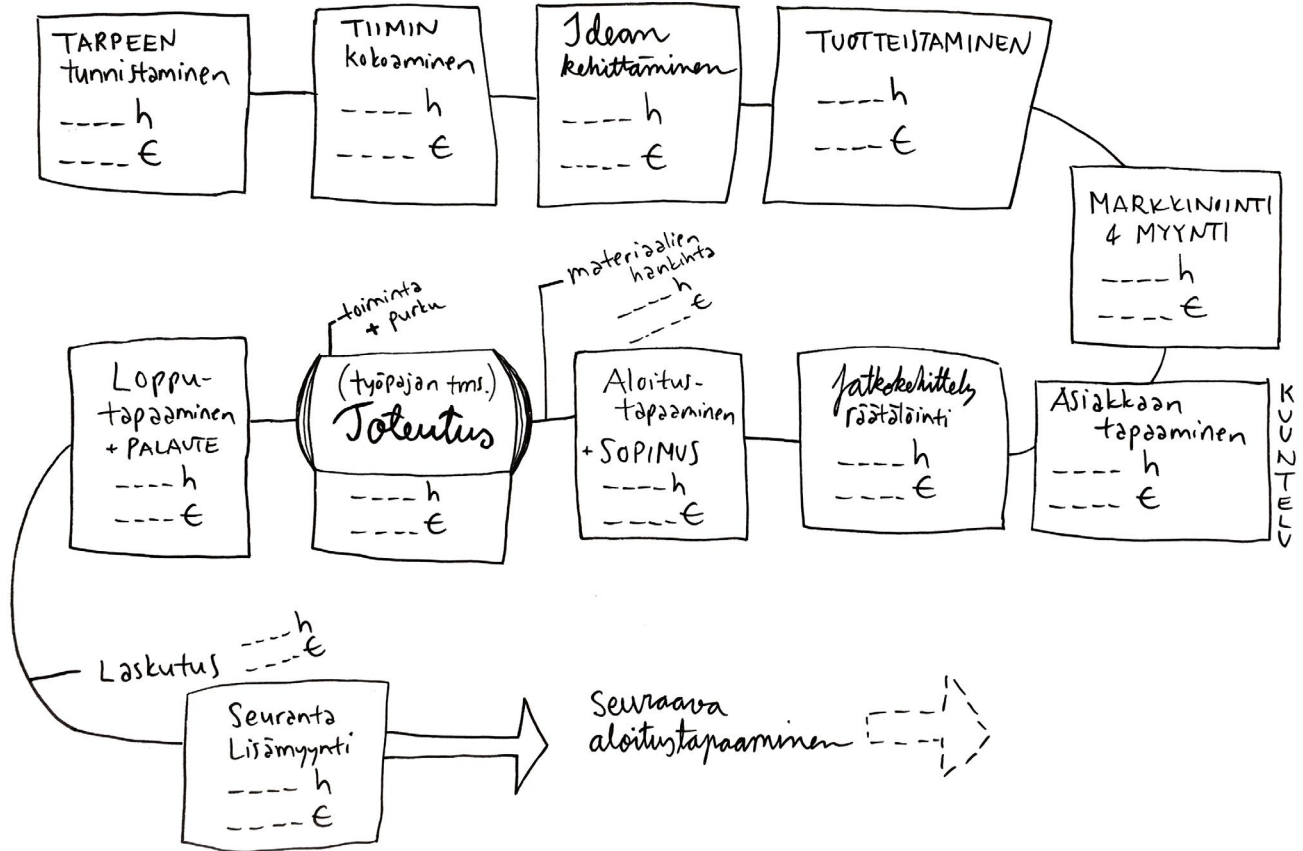 TARPEEN
tunnistaminen
---- h
---- €
TIIMIN
kokoaminen
---- h
---- €
Idean
kehittäminen
---- h
---- €
TUOTTEISTAMINEN
---- h
---- €
MARKKINOINTI
& MYYNTI
---- h
---- €
Asiakkaan
tapaaminen
---- h
---- €
KUUNTELU
Jatkokehittely
räätälöinti
---- h
---- €
materiaalien
hankinta
---- h
---- €
Aloitus-
tapaaminen
+ SOPIMUS
---- h
---- €
toiminta
+ purku
(työpajan tms.)
Toteutus
---- h
---- €
Loppu-
tapaaminen
+ PALAUTE
---- h
---- €
Laskutus
---- h
---- €
Seuranta
Lisämyynti
---- h
---- €
Seuraava
aloitustapaaminen